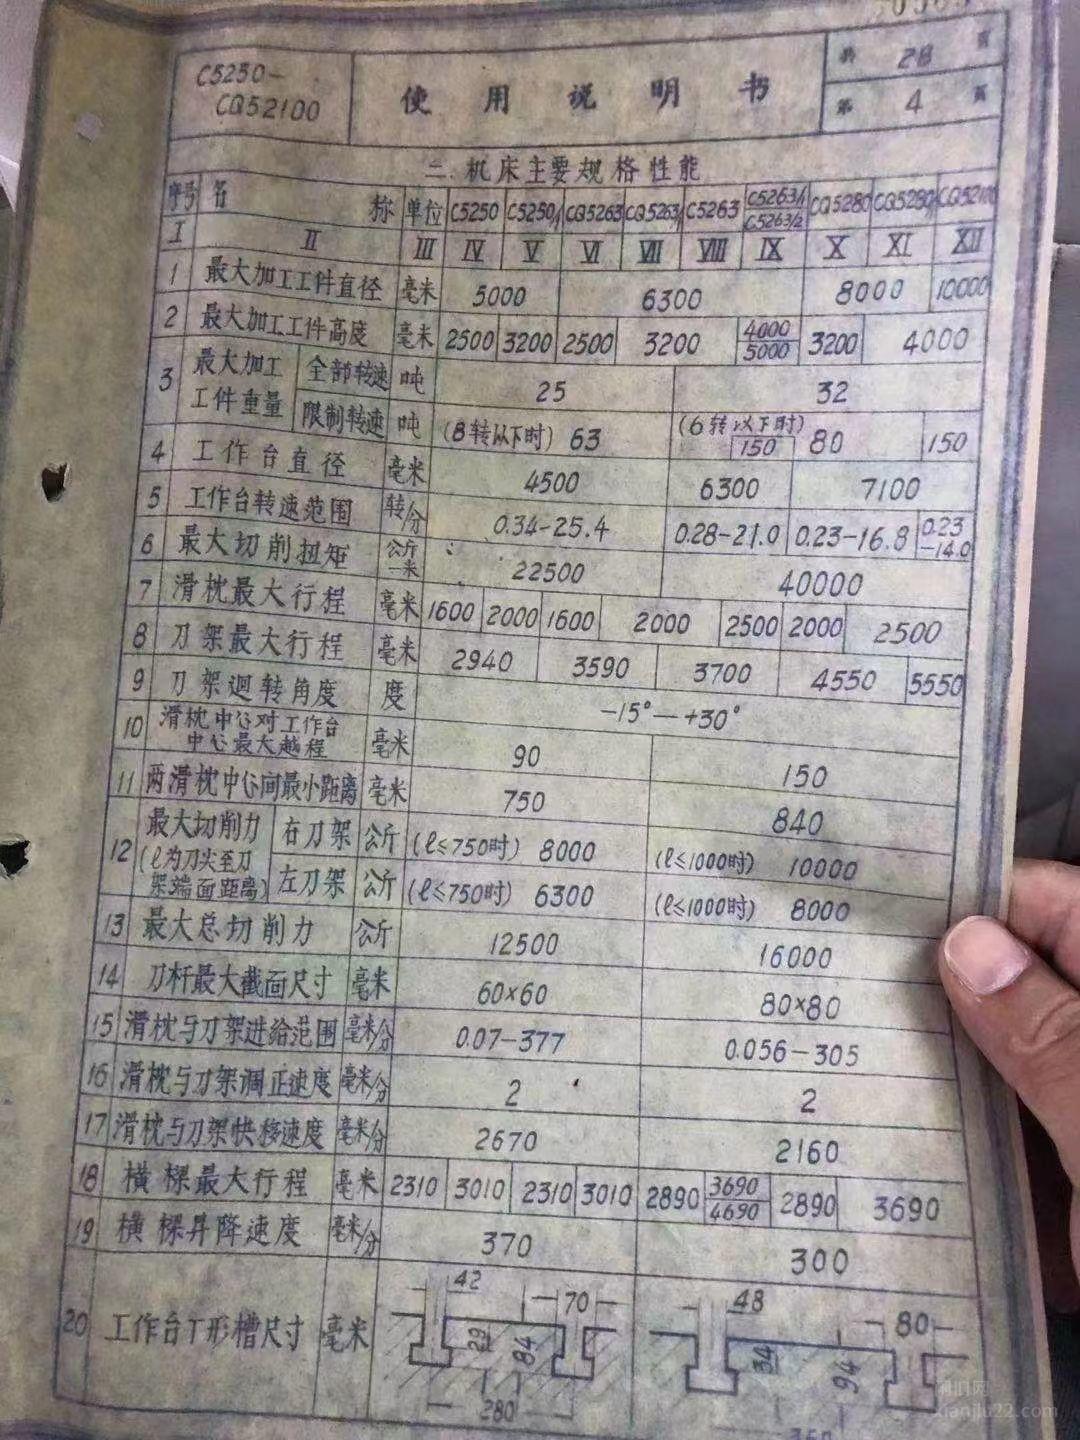 C5250-
CQ52100
使用说明书
共 28 页
第 4 页
二. 机床主要规格性能
序号 名称 单位 C5250 C5250/1 CQ5263 CQ5263/1 C5263 C5263/1 C5263/2 CQ5280 CQ5280/1 CQ52100
I II III IV V VI VII VIII IX X XI XII
1 最大加工工件直径 毫米 5000 6300 8000 10000
2 最大加工工件高度 毫米 2500 3200 2500 3200 4000 5000 3200 4000
3 最大加工工件重量 全部转速 吨 25 32
限制转速 吨 (8转以下时) 63 (6转以下时) 150 80 150
4 工作台直径 毫米 4500 6300 7100
5 工作台转速范围 转/分 0.34-25.4 0.28-21.0 0.23-16.8 0.23-14.0
6 最大切削扭矩 公斤-米 22500 40000
7 滑枕最大行程 毫米 1600 2000 1600 2000 2500 2000 2500
8 刀架最大行程 毫米 2940 3590 3700 4550 5550
9 刀架迴转角度 度 -15°—+30°
10 滑枕中心对工作台中心最大越程 毫米 90 150
11 两滑枕中心间最小距离 毫米 750 840
12 最大切削力(ℓ为刀尖至刀架端面距离) 右刀架 公斤 (ℓ≤750时) 8000 (ℓ≤1000时) 10000
左刀架 公斤 (ℓ≤750时) 6300 (ℓ≤1000时) 8000
13 最大总切削力 公斤 12500 16000
14 刀杆最大截面尺寸 毫米 60×60 80×80
15 滑枕与刀架进给范围 毫米/分 0.07-377 0.056-305
16 滑枕与刀架调正速度 毫米/分 2 2
17 滑枕与刀架快移速度 毫米/分 2670 2160
18 横樑最大行程 毫米 2310 3010 2310 3010 2890 3690 4690 2890 3690
19 横樑昇降速度 毫米/分 370 300
20 工作台T形槽尺寸 毫米 42 70 29 84 280 48 80 34 94
xianjiu22.com